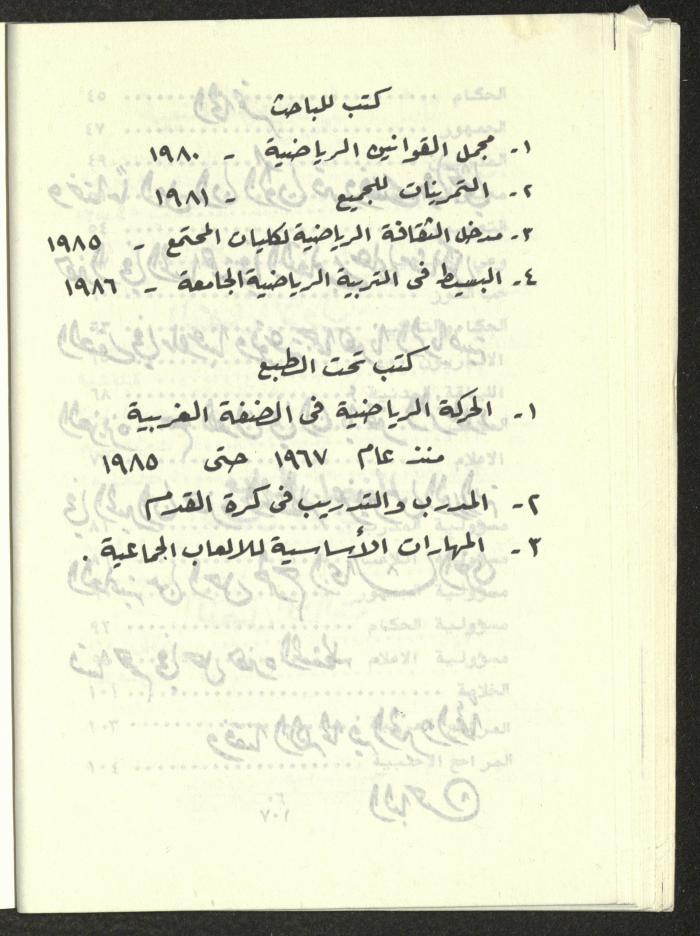 كتب للباحث
١- مجمل القوانين الرياضية - ١٩٨٠
٢- التمرينات للجميع - ١٩٨١
٣- مدخل الثقافة الرياضية لكليات المجتمع - ١٩٨٥
٤- البسيط في التربية الرياضية الجامعة - ١٩٨٦
كتب تحت الطبع
١- الحركة الرياضية في الضفة الغربية
منذ عام ١٩٦٧ حتى ١٩٨٥
٢- المدرب والتدريب في كرة القدم
٣- المهارات الأساسية للالعاب الجماعية .